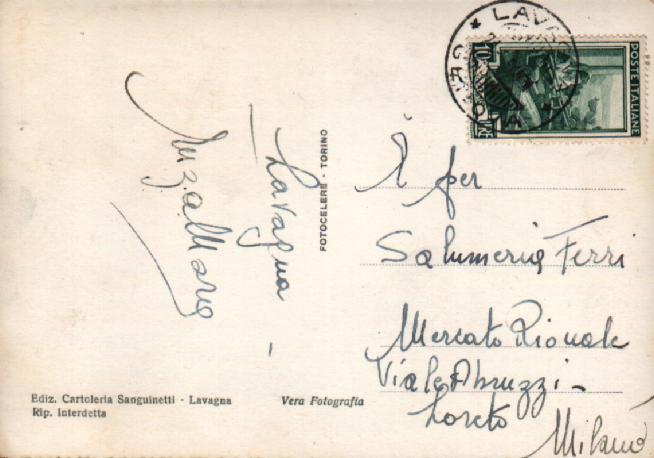 Lavagna
AnzaMaria
FOTOCELERE - TORINO
Ediz. Cartoleria Sanguinetti - Lavagna
Rip. Interdetta
Vera Fotografia
LAVAGNA
10 LIRE
POSTE ITALIANE
È per
Salumeria Ferri
Mercato Rionale
Viale Abruzzi -
Loreto
Milano